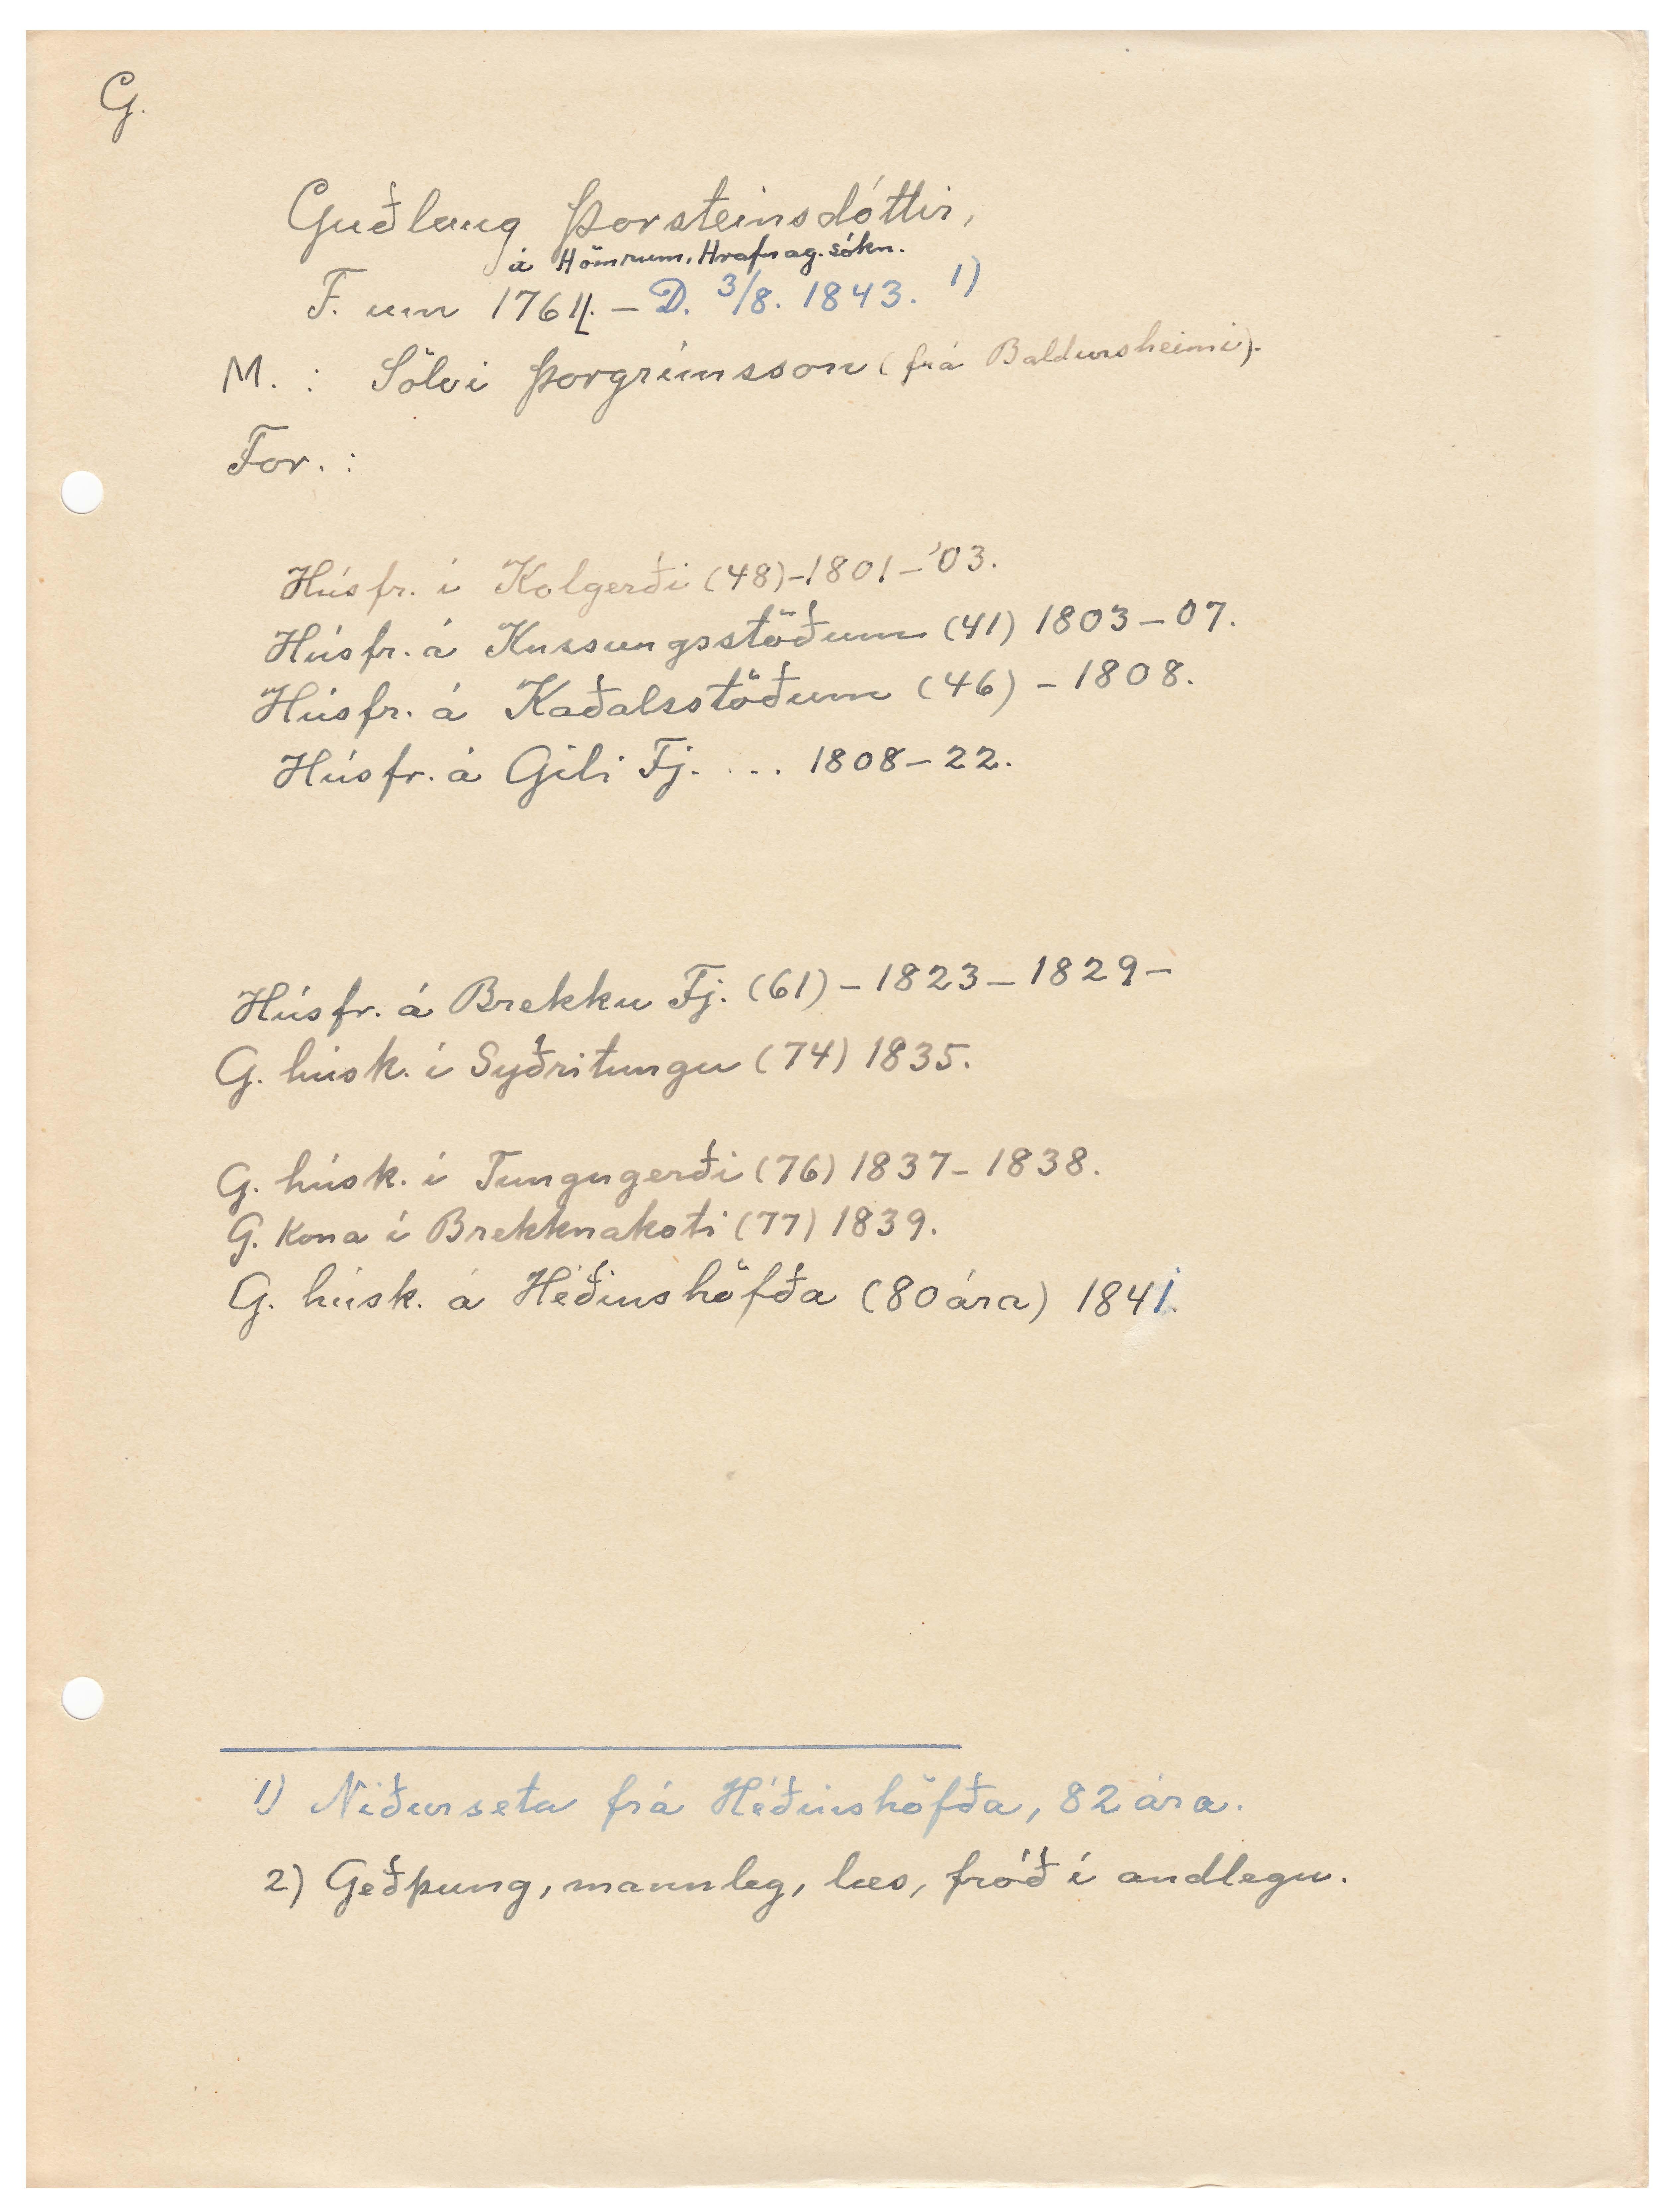 G.
Guðlaug Þorsteinsdóttir,
á Hömrum, Hrafnag.sókn.
F. um 1764. – D. 3/8. 1843. 1)
M. : Sölvi Þorgrímsson (frá Baldursheimi).
For. :
Húsfr. í Kolgerði (48) – 1801 – '03.
Húsfr. á Kussungsstöðum (41) 1803 – 07.
Húsfr. á Kaðalsstöðum (46) – 1808.
Húsfr. á Gili Fj. . . . 1808 – 22.
Húsfr. á Brekku Fj. (61) – 1823 – 1829 –
G. húsk. í Syðritungu (74) 1835.
G. húsk. í Tungugerði (76) 1837 – 1838.
G. Kona í Brekknakoti (77) 1839.
G. húsk. á Héðinshöfða (80 ára) 1841.
1) Niðurseta frá Héðinshöfða, 82 ára.
2) Geðþung, mannleg, læs, fróð í andlegu.